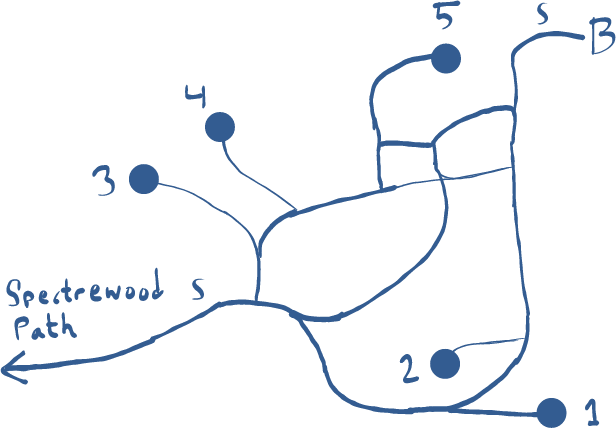 5
S
B
4
3
Spectrewood
Path
S
2
1